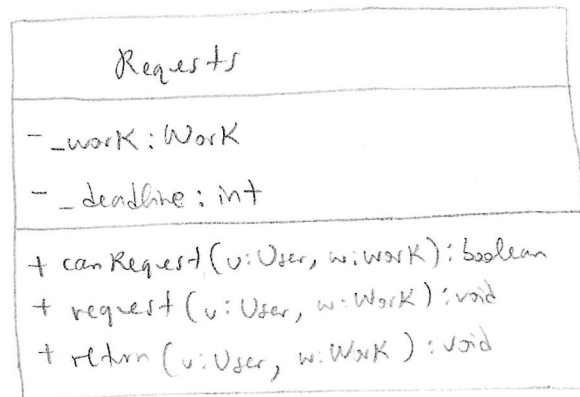 Requests
- _work: Work
- _deadline: int
+ canRequest(u: User, w: Work): boolean
+ request(u: User, w: Work): void
+ return(u: User, w: Work): void